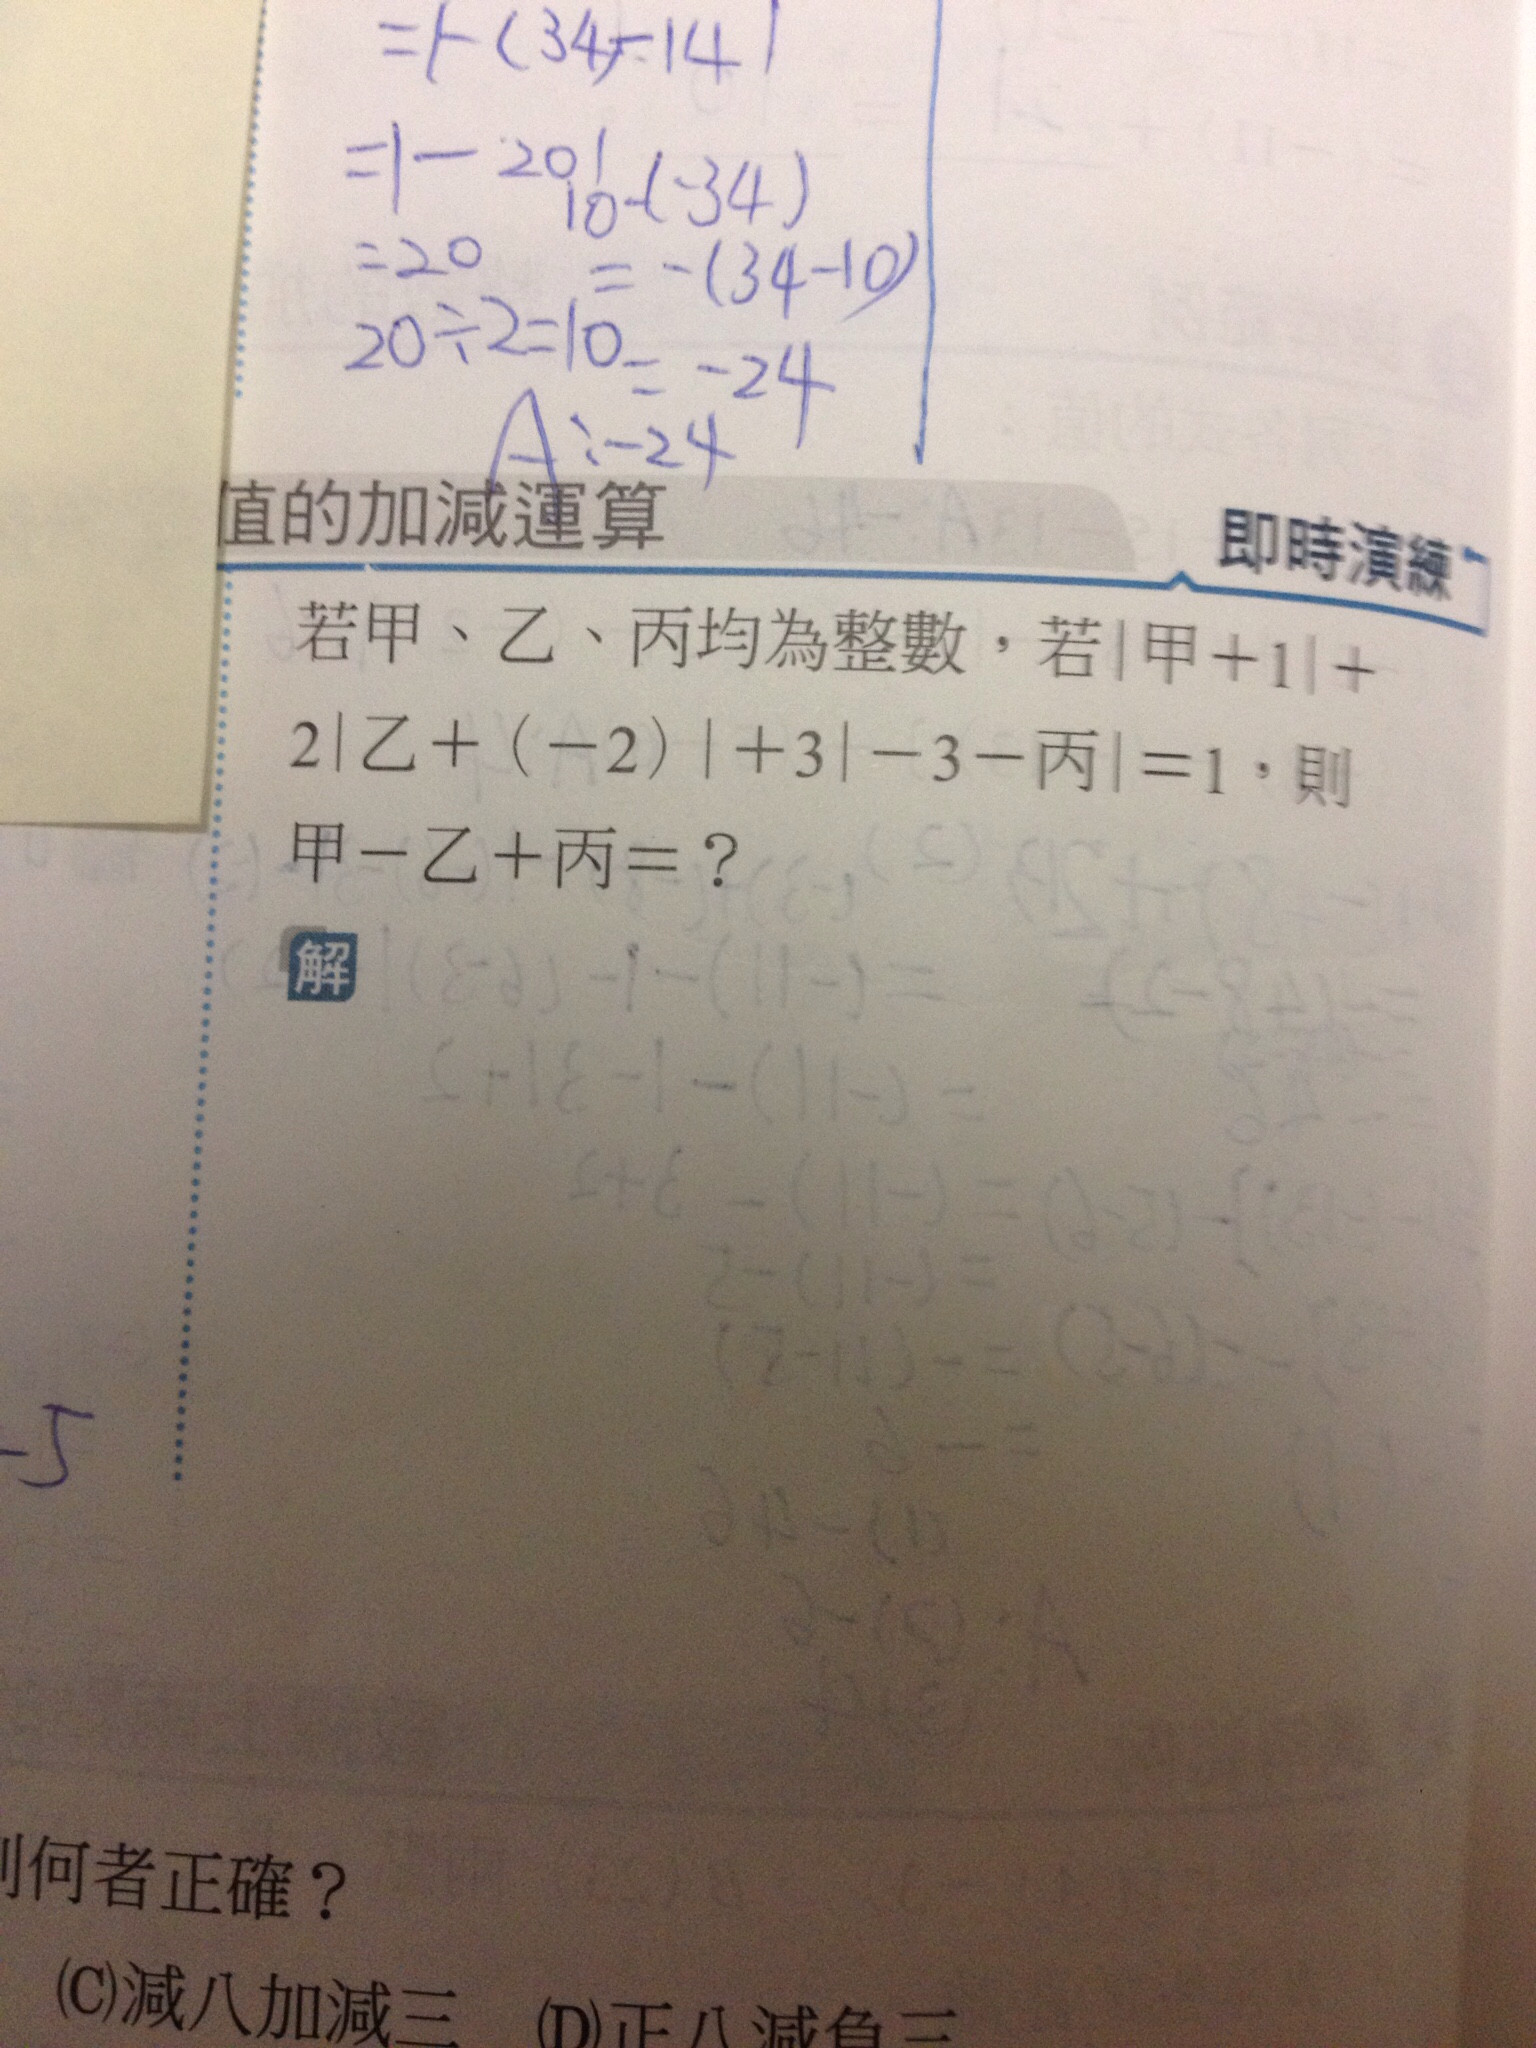 =|-(34-14|
=|-20|
=20
20÷2=10
10-(-34)
=-(34-10)
=-24
A:-24
值的加減運算
即時演練
若甲、乙、丙均為整數，若|甲+1|+
2|乙+(-2)|+3|-3-丙|=1，則
甲-乙+丙=？
解
-5
何者正確？
(C)減八加減三 (D)正八減負三